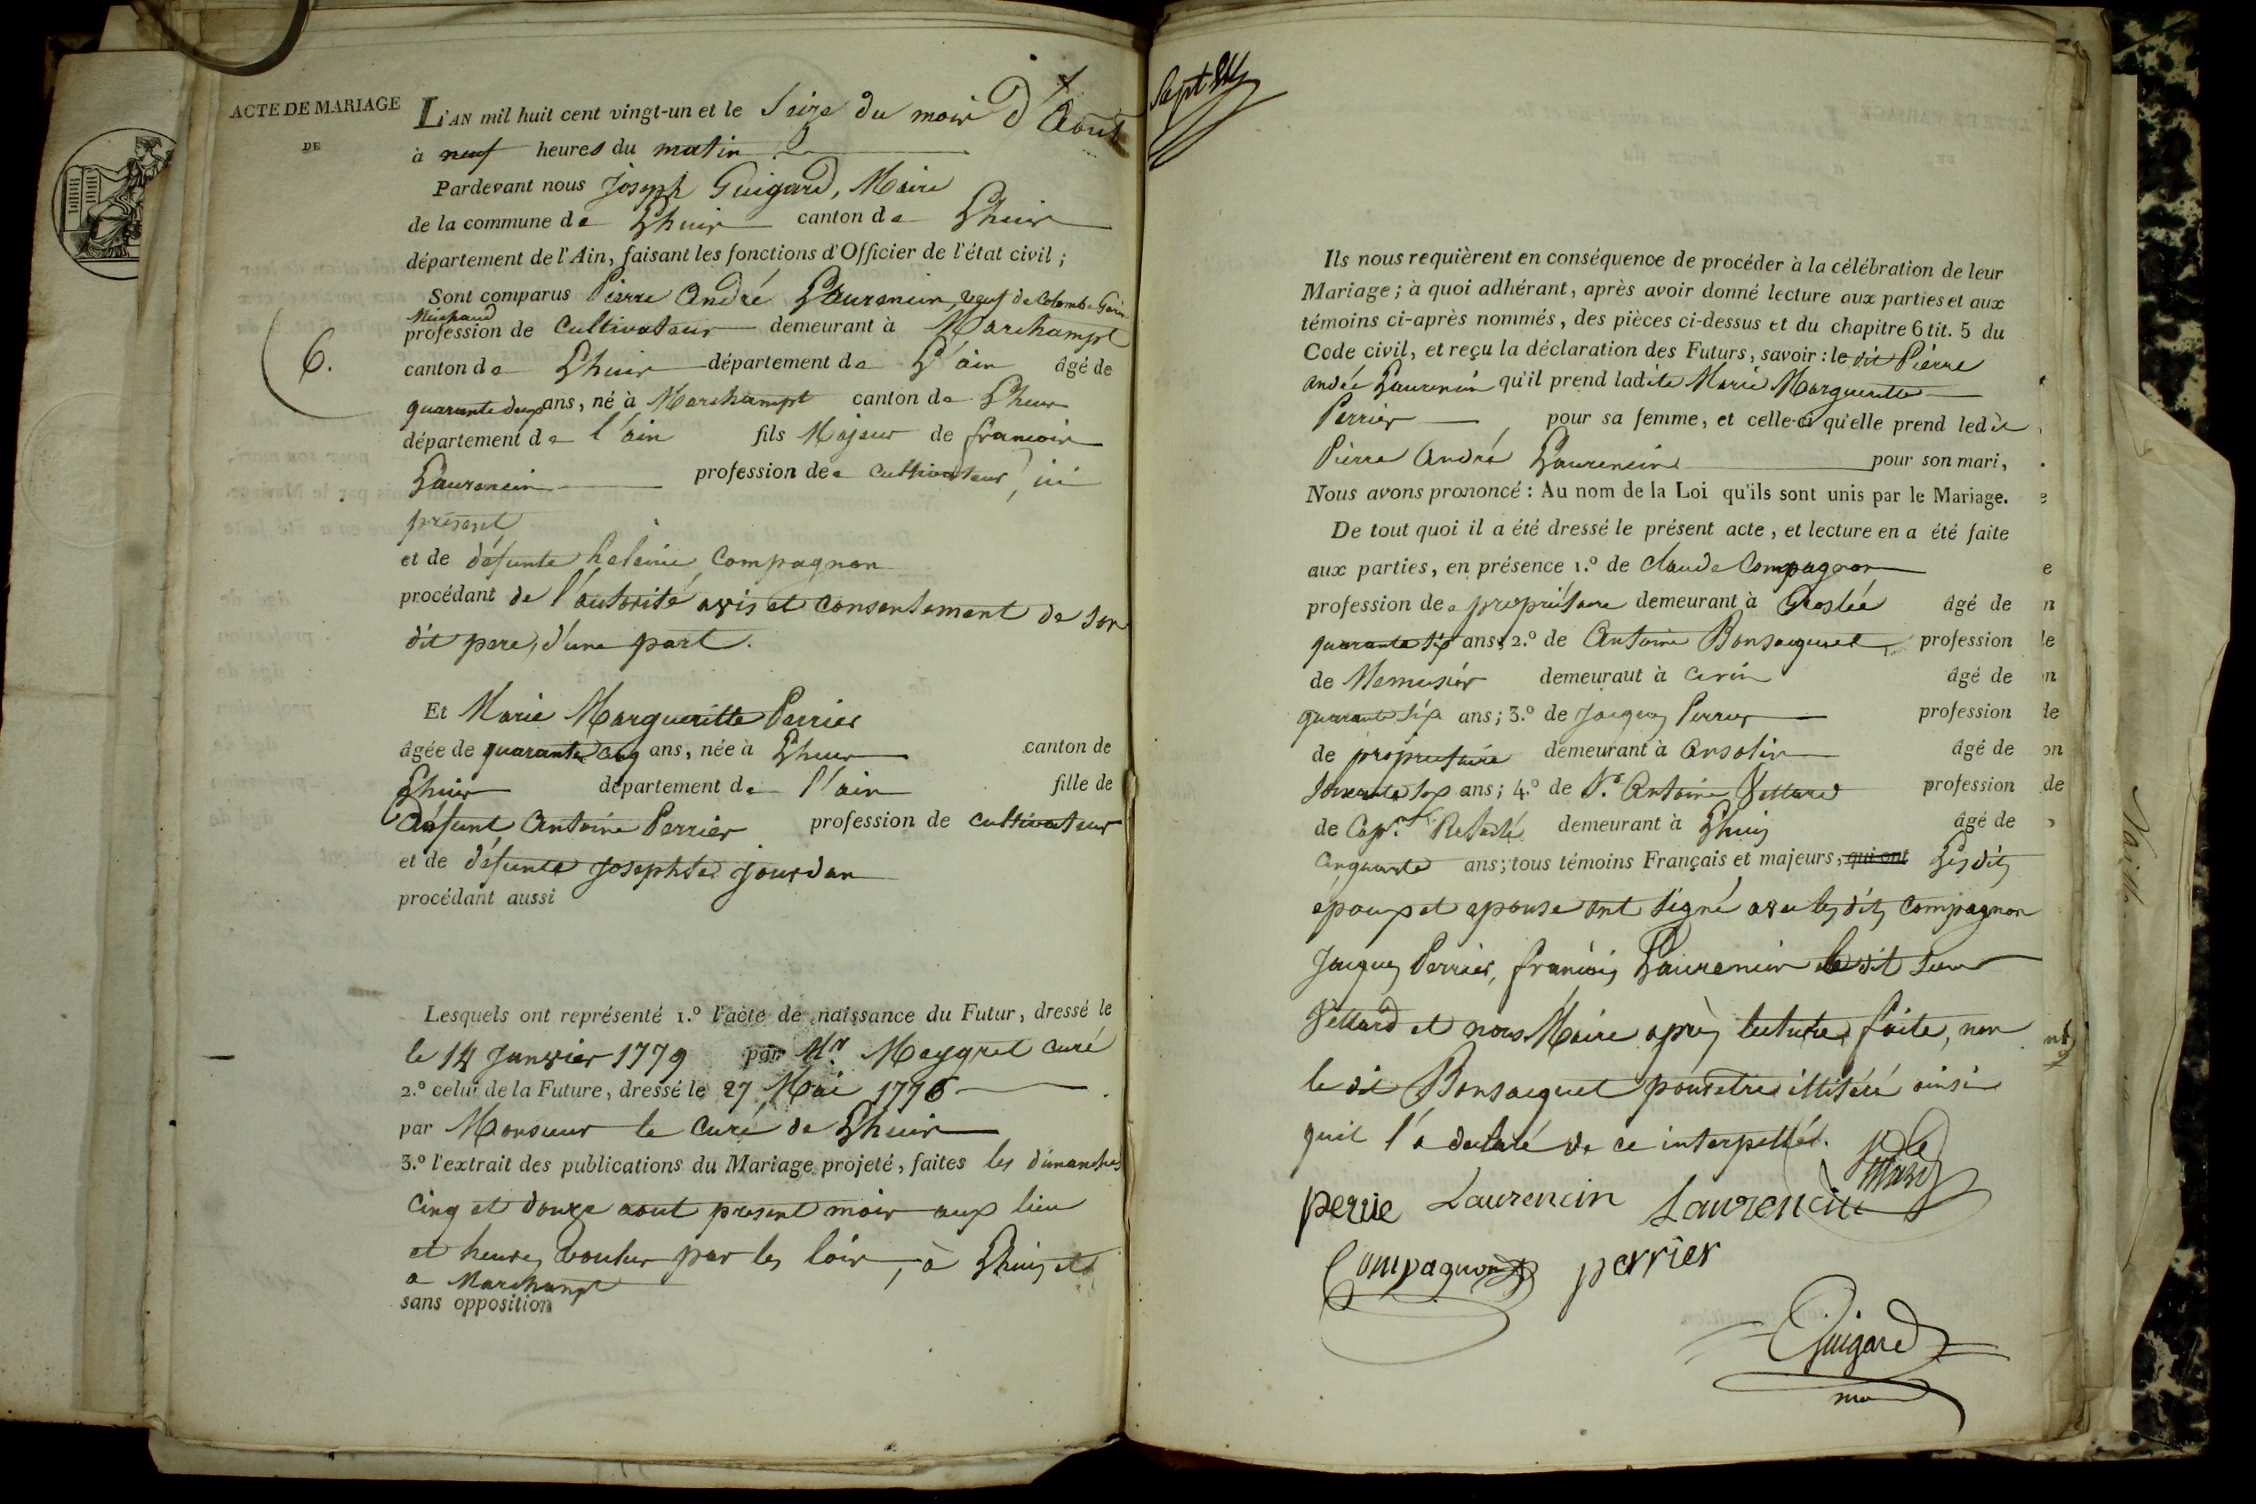 ACTE DE MARIAGE
DE
6.
L'AN mil huit cent vingt-un et le Seize du mois d'Aout
à neuf heures du matin
Pardevant nous Joseph Guigard, Maire
de la commune de Lhuis canton de Lhuis
département de l'Ain, faisant les fonctions d'Officier de l'état civil ;
Sont comparus Pierre André Laurencin, veuf de Colombe Guin
Michaud
profession de Cultivateur demeurant à Marchampt
canton de Lhuis département de L'ain âgé de
quarante deux ans, né à Marchampt canton de Lhuis
département de l'ain fils Majeur de francois
Laurencin profession de cultivateur, ici
présent
et de défunte heleine Compagnon
procédant de l'autorité avis et consentement de son
dit pere, d'une part.
Et Marie Margueritte Perrier
âgée de quarante cinq ans, née à Lhuis canton de
Lhuis département de l'ain fille de
défunt Antoine Perrier profession de cultivateur
et de défunte Josephte Jourdan
procédant aussi
Lesquels ont représenté 1.º l'acte de naissance du Futur, dressé le
le 14 Janvier 1779 par Mr Meygret curé
2.º celui de la Future, dressé le 27 Mai 1776
par Monsieur le Curé de Lhuis
3.º l'extrait des publications du Mariage projeté, faites les dimanches
Cinq et douze aout present mois aux lieu
et heures voulus par les loix, à Lhuis et
a Marchampt
sans opposition
Sept
Ils nous requièrent en conséquence de procéder à la célébration de leur
Mariage ; à quoi adhérant, après avoir donné lecture aux parties et aux
témoins ci-après nommés, des pièces ci-dessus et du chapitre 6 tit. 5 du
Code civil, et reçu la déclaration des Futurs, savoir : le dit Pierre
André Laurencin qu'il prend ladite Marie Margueritte
Perrier pour sa femme, et celle-ci qu'elle prend ledit
Pierre André Laurencin pour son mari,
Nous avons prononcé : Au nom de la Loi qu'ils sont unis par le Mariage.
De tout quoi il a été dressé le présent acte, et lecture en a été faite
aux parties, en présence 1.º de Claude Compagnon
profession de propriétaire demeurant à Groslée âgé de
quarante six ans; 2.º de Antoine Bonsacquet profession
de Menusier demeurant à Cerin âgé de
quarante six ans ; 3.º de Jacques Perrier profession
de propriétaire demeurant à Ansolin âgé de
ans ; 4.º de Sr. Antoine Vettard profession
de Capne. Retraité demeurant à Lhuis âgé de
Cinquante ans ; tous témoins Français et majeurs, qui ont Lesdits
époux et epouse ont signé avec lesdits Compagnon
Jacques Perrier, francois Laurencin ledit sieur
Vettard et nous Maire après lecture faite, non
le dit Bonsacquet pour etre illitéré ainsi
quil l'a declaré de ce interpellé.
perrie Laurencin Laurencin
Compagnon perrier
Guigard